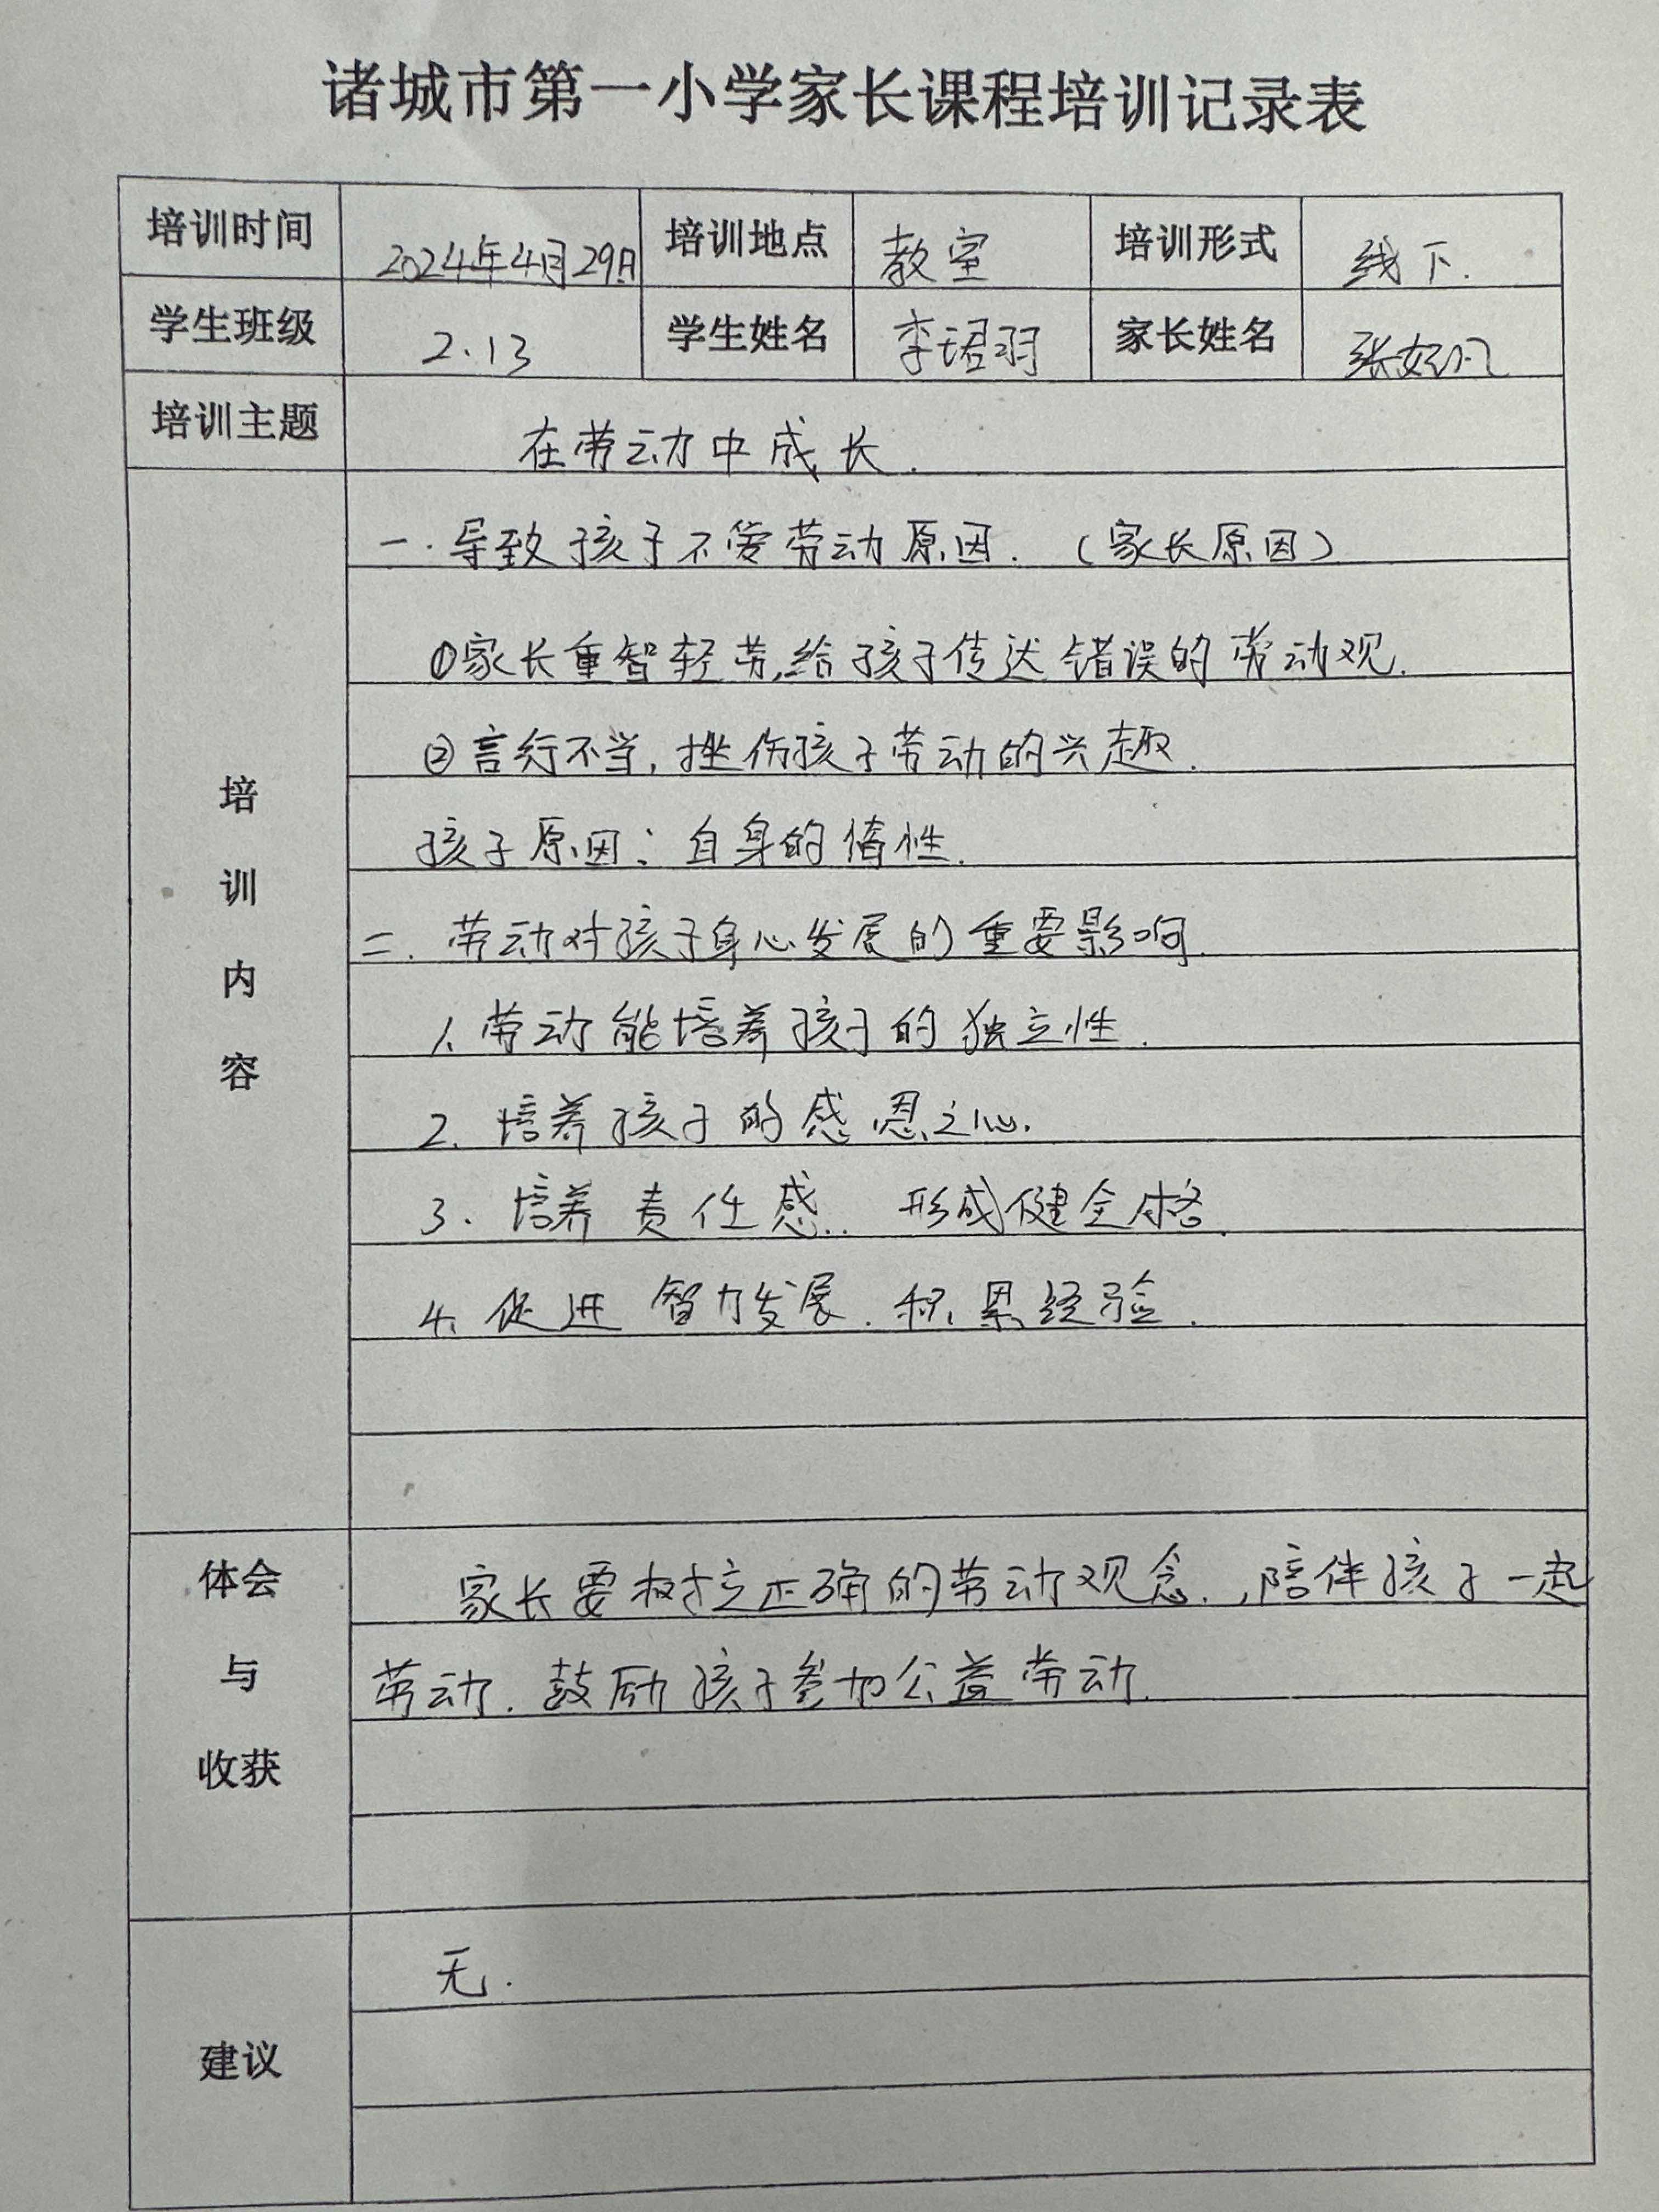 诸城市第一小学家长课程培训记录表
培训时间 2024年4月29日 培训地点 教室 培训形式 线下.
学生班级 2.13 学生姓名 李珺羽 家长姓名 张
培训主题 在劳动中成长.
培训内容
一.导致孩子不爱劳动原因.（家长原因）
①家长重智轻劳,给孩子传达错误的劳动观.
②言行不当,挫伤孩子劳动的兴趣.
孩子原因:自身的惰性.
二.劳动对孩子身心发展的重要影响.
1.劳动能培养孩子的独立性.
2.培养孩子的感恩之心.
3.培养责任感..形成健全格.
4.促进智力发展.积累经验.
体会与收获
家长要树立正确的劳动观念.,陪伴孩子一起
劳动.鼓励孩子参加公益劳动.
建议
无.